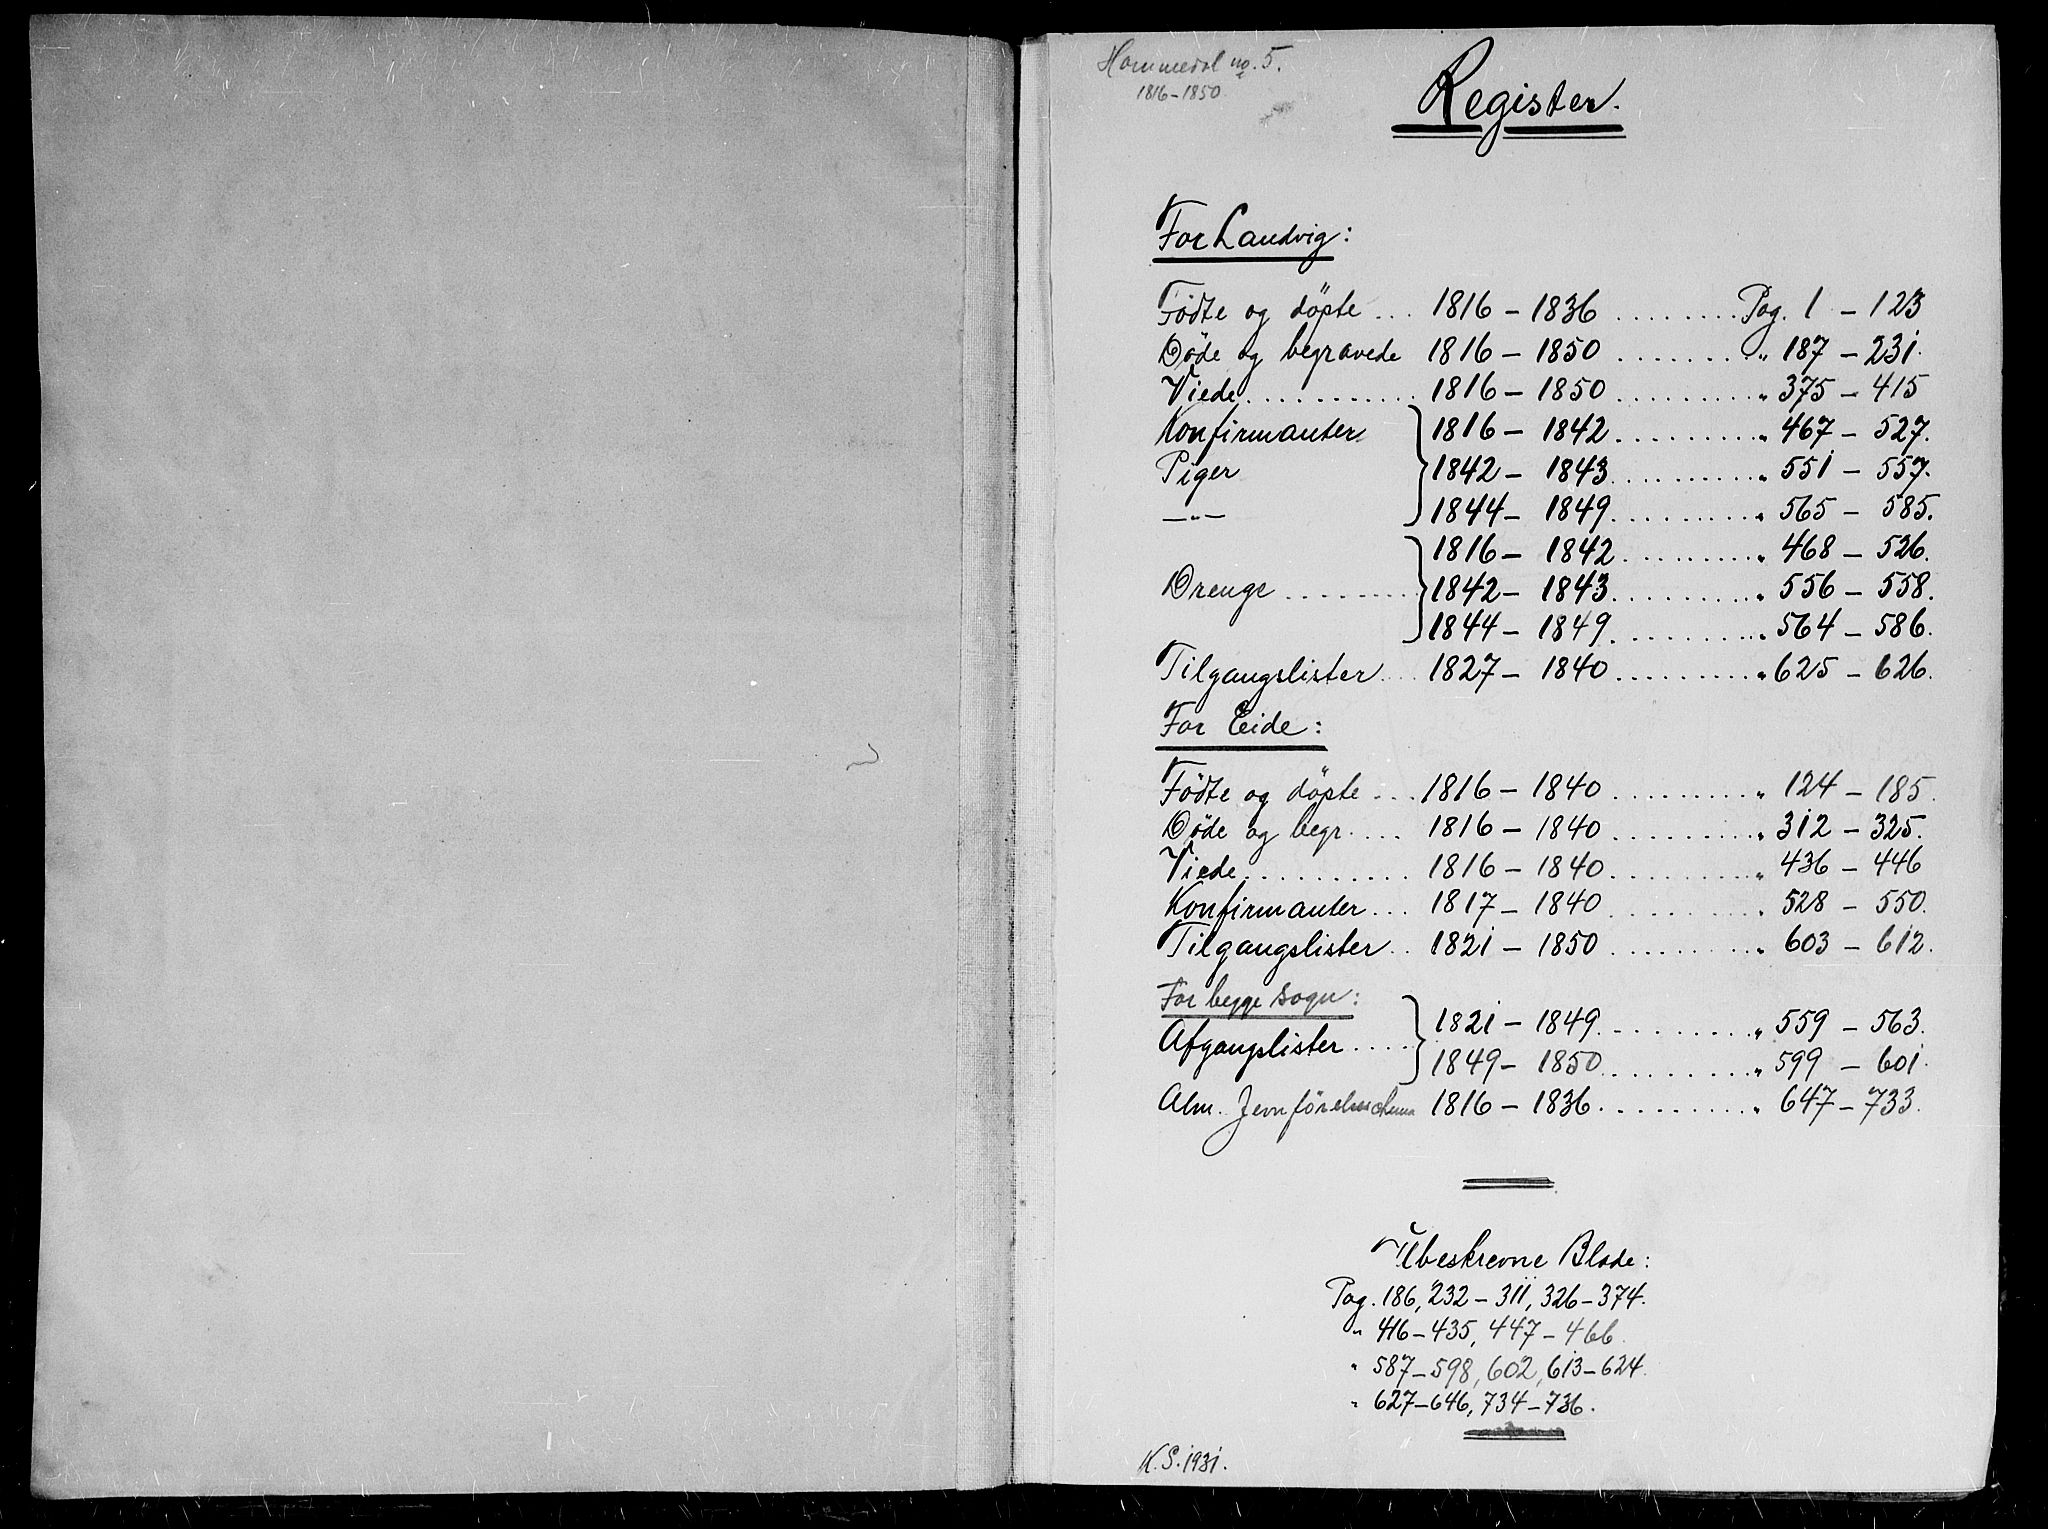 Hommedal no. 5.
1816-1850
Register.
For Landvig:
Födte og döpte ... 1816 - 1836 ......... Pag. 1 - 123
Döde og begravede 1816 - 1850 ......... " 187 - 231.
Viede ........... 1816 - 1850 ......... " 375 - 415
Konfirmanter } 1816 - 1842 ......... " 467 - 527.
Piger } 1842 - 1843 ......... " 551 - 557.
—"— } 1844 - 1849 ......... " 565 - 585.
} 1816 - 1842 ......... " 468 - 526.
Drenge ......... } 1842 - 1843 ......... " 556 - 558.
} 1844 - 1849 ......... " 564 - 586.
Tilgangslister ... 1827 - 1840 ......... " 625 - 626.
For Eide:
Födte og döpte ... 1816 - 1840 ......... " 124 - 185.
Döde og begr. ... 1816 - 1840 ......... " 312 - 325.
Viede .......... 1816 - 1840 ......... " 436 - 446
Konfirmanter ... 1817 - 1840 ......... " 528 - 550.
Tilgangslister .. 1821 - 1850 ......... " 603 - 612.
For begge sogn:
Afgangslister .... } 1821 - 1849 ......... " 559 - 563.
} 1849 - 1850 ......... " 599 - 601.
Alm. Jevnförelsesschema 1816 - 1836 ......... " 647 - 733.
Ubeskrevne Blade:
Pag. 186, 232 - 311, 326 - 374.
" 416 - 435, 447 - 466.
" 587 - 598, 602, 613 - 624.
" 627 - 646, 734 - 736.
K.S. 1931.